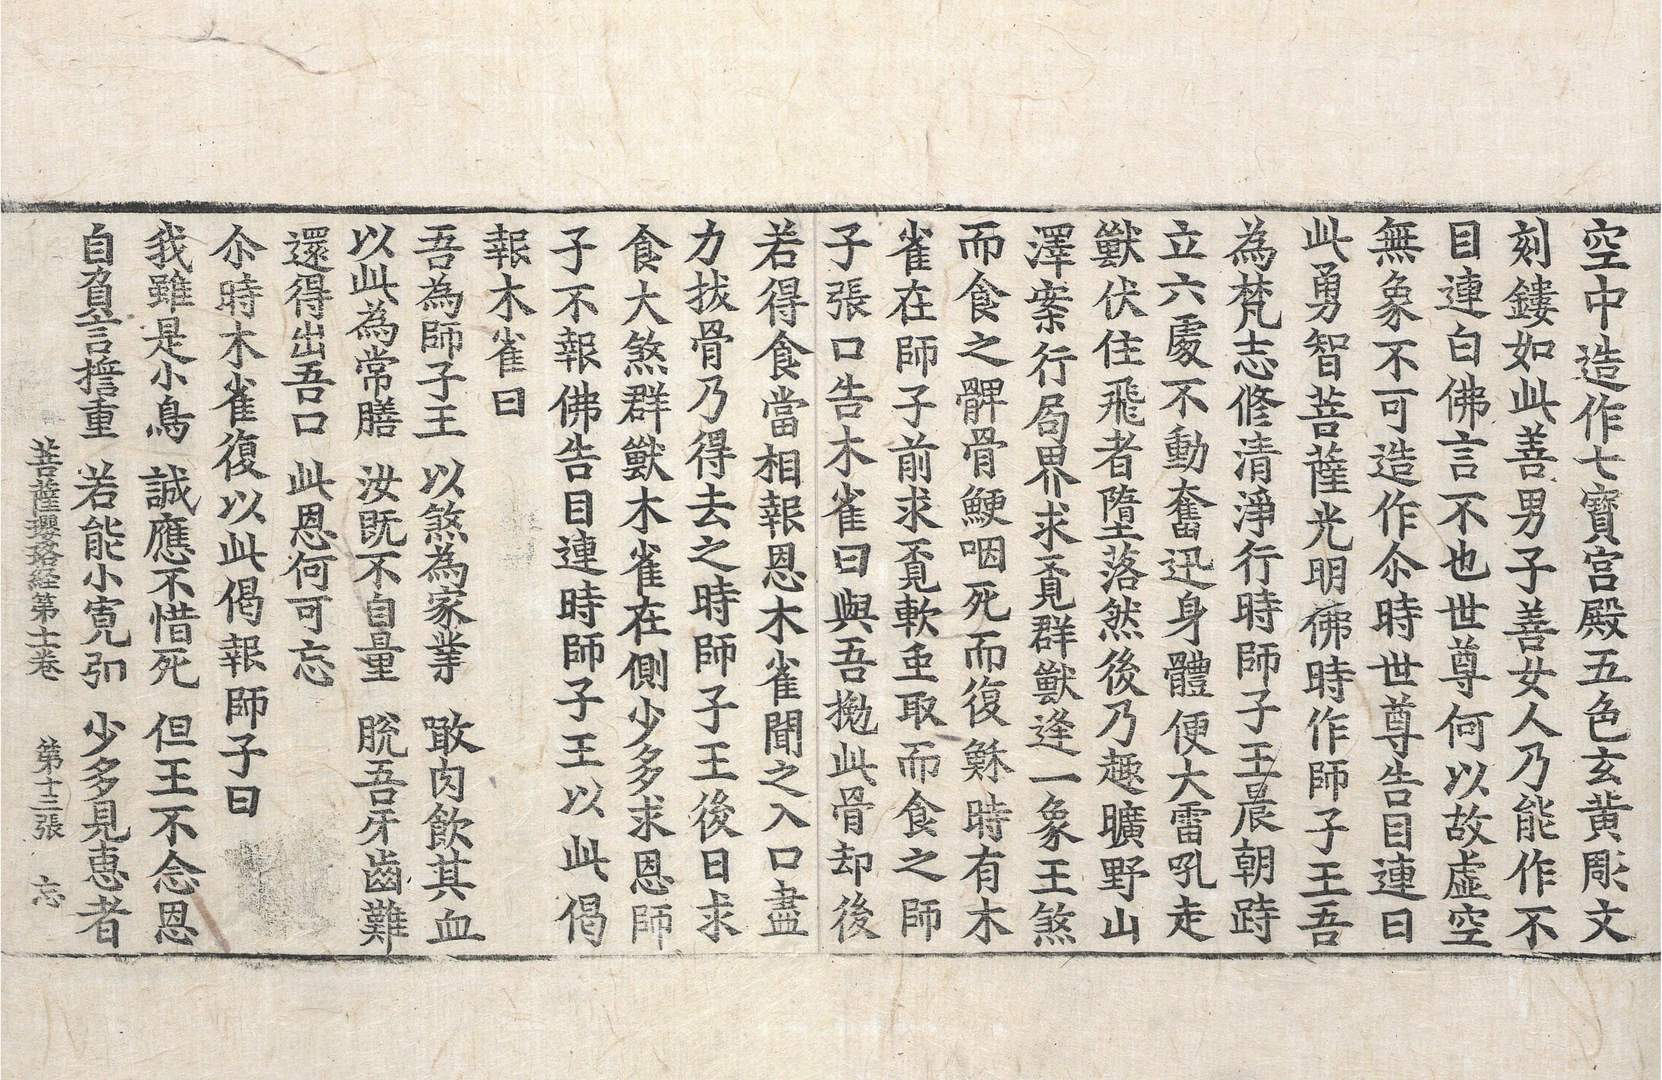 空中造作七寶宮殿五色玄黄彫文
刻鏤如此善男子善女人乃能作不
目連白佛言不也世尊何以故虛空
無象不可造作尒時世尊告目連曰
此勇智菩薩光明佛時作師子王吾
為梵志修清淨行時師子王晨朝跱
立六處不動奮迅身體便大雷吼走
獸伏住飛者墮落然後乃趣曠野山
澤案行局界求覔群獸逢一象王煞
而食之髀骨鯁咽死而復穌時有木
雀在師子前求覔軟䖝取而食之師
子張口告木雀曰與吾㧾此骨却後
若得食當相報恩木雀聞之入口盡
力拔骨乃得去之時師子王後日求
食大煞群獸木雀在側少多求恩師
子不報佛告目連時師子王以此偈
報木雀曰
吾為師子王 以煞為家業 噉肉飲其血
以此為常膳 汝既不自量 脫吾牙齒難
還得出吾口 此恩何可忘
尒時木雀復以此偈報師子曰
我雖是小鳥 誠應不惜死 但王不念恩
自負言擔重 若能小寬弘 少多見恵者
菩薩瓔珞経第十一卷 第十三張 忘